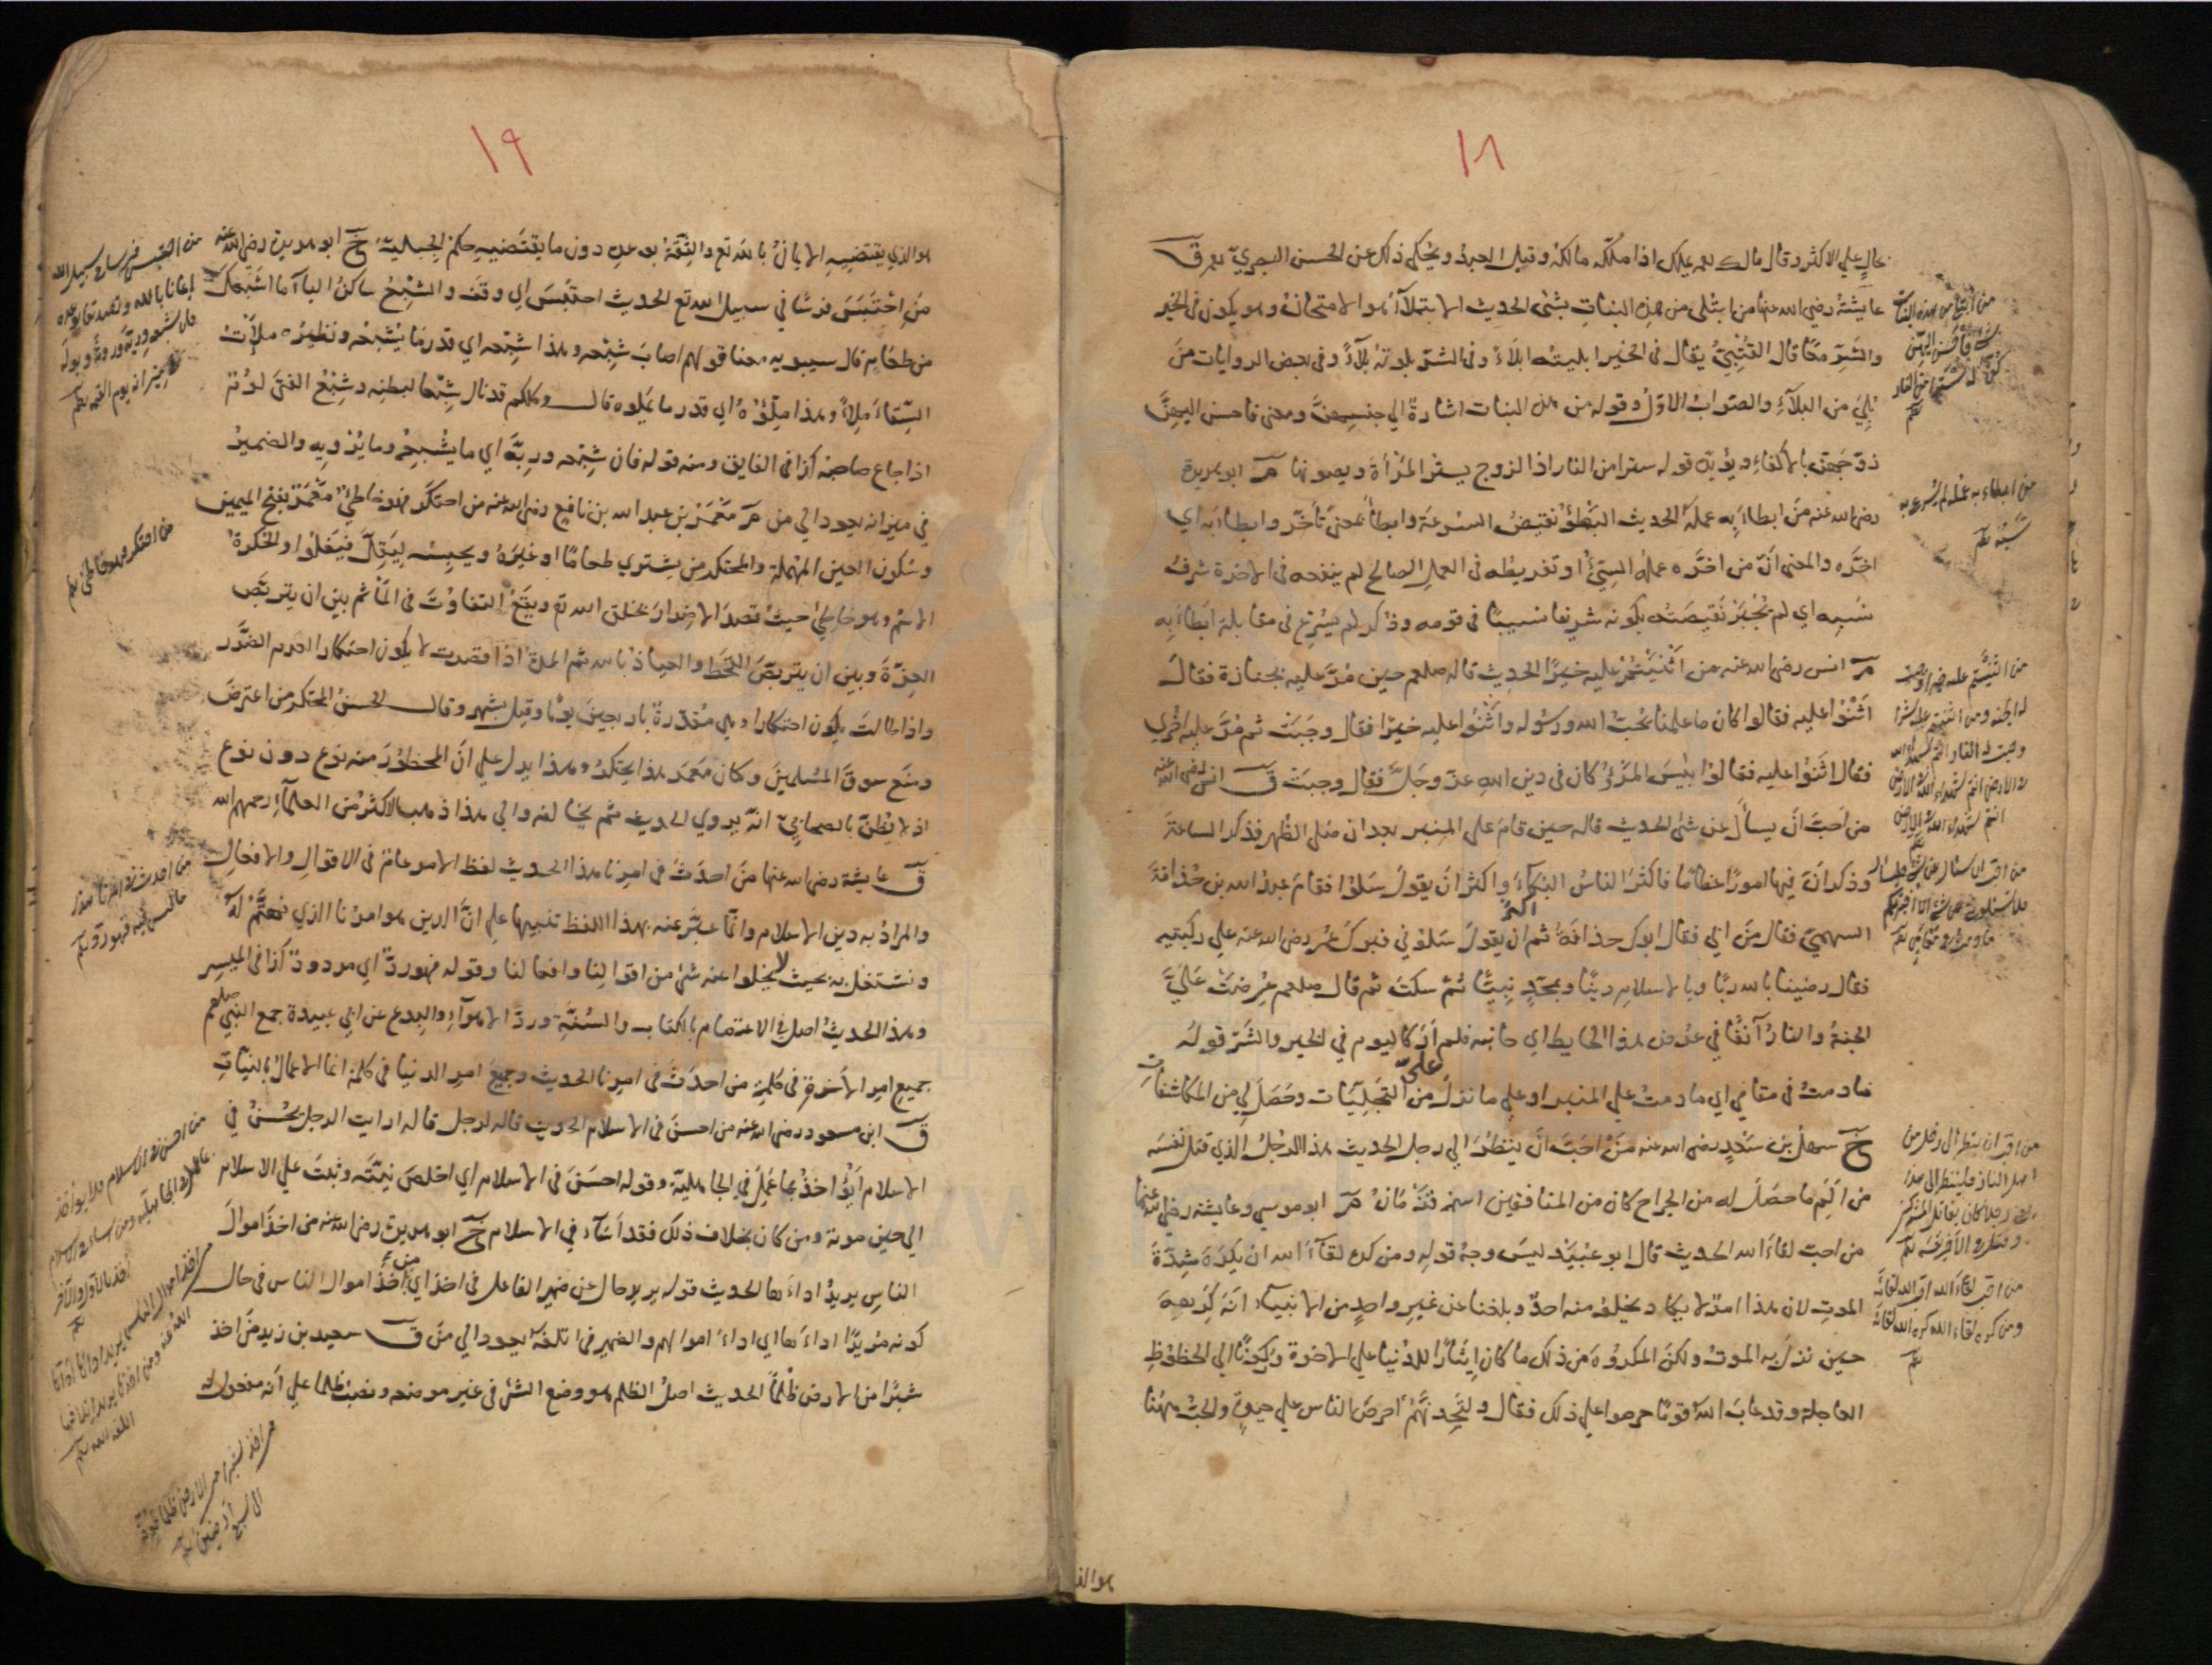 ١٨
عالٍ علي الاكثر وقال مالك نعم يملك اذا ملّكه مالكه وقيل العبد ويُحكي ذلك عن الحسن البصريّ نعم ق
عايشةُ رضي الله عنها من ابتُلي من هذه البنات بشئ الحديث الابتلاءُ هو الامتحانُ وهو يكون في الخير
والشرّ معًا قال القُتَيْبيّ يقال في الخير ابليته ابلاءً وفي الشرّ بلوته بلاءً وفي بعض الروايات مَن
بُلِيَ من البلاءِ والصواب الاوّل وقوله من هذه البنات اشارةٌ الي جنسهنّ ومعنى فاحسن اليهنّ
زوّجهنّ بالاكفاءِ ويؤيّده قوله سترا من النار اذ الزوج يستر المرأةَ ويصونها م ابو هريرة
رضي الله عنه مَن ابطاءَ به عمله الحديث البطؤُ نقيضُ السرعة وابطأ بمعنى تأخّر وابطاءَ به اي
اخّره والمعنى انّ من اخّره عمله السيّئ او تفريطه في العمل الصالح لم ينفعه في الاخرة شرفُ
نسبه اي لم يُجبَر نقيصته بكونه شريفا نسيبًا في قومه وذكر لم يسرع في مقابلة ابطاءَ به
م انس رضي الله عنه من اثنيتم عليه خيرًا الحديث قاله صلعم حين مُرّ عليه بجنازة فقال
اثنوا عليه فقالوا كان ما علمنا يحبّ الله ورسوله واثنوا عليه خيرًا فقال وجبت ثم مُرّ عليه اخري
فقال اثنوا عليه فقالوا بئس المرؤُ كان في دين الله عزّ وجلّ فقال وجبت ق انس رضي الله عنه
من احبّ ان يسأل عن شئ الحديث قاله حين قام علي المنبر بعد ان صلي الظهر فذكر الساعة
وذكر انّ فيها امورًا عظامًا فاكثر الناسُ البكاءَ واكثر ان يقول سلوني فقام عبد الله بن حُذافة
السهميّ فقال مَن ابي فقال ابوك حذافةُ ثم اكثر ان يقول سلوني فبرك عمر رضي الله عنه علي ركبتيه
فقال رضينا بالله ربًّا وبالاسلام دينًا وبمحمّدٍ نبيًّا ثمّ سكت ثم قال صلعم عُرضت عليّ
الجنةُ والنارُ آنفًا في عرض هذا الحايط اي جانبه فلم ار كاليوم في الخير والشرّ قوله
ما دمتُ في مقامي اي ما دمت علي المنبر او علي ما نزل عليّ من التجلّيات وحصل لي من المكاشفات
خ سهل بن سعدٍ رضي الله عنه مَن احبّ ان ينظر الي رجل الحديث هذا الرجل الذي قتل نفسه
من الم ما حصل له من الجراح كان من المنافقين اسمه قزمان م ابو موسي وعايشة رضي الله عنهما
من احبّ لقاءَ الله الحديث قال ابو عُبيد ليس وجهُ قوله ومن كره لقاءَ الله ان يكره شدّة
الموت لان هذا امرٌ لا يكاد يخلو منه احدٌ وبلغنا عن غير واحدٍ من الانبياء انّه كرهه
حين نزل به الموت ولكنّ المكروه من ذلك ما كان ايثارًا للدنيا علي الاخرة وركونًا الي الحظوظ
العاجلة وقد عاب الله قومًا حرصوا علي ذلك فقال ولتجدنّهم احرص الناس علي حيوة والحبّ هنا
هو الذ
من ابطاء به عمله لم يسرع به
نسبه
من احب ان ينظر الي رجل من
اهل النار فلينظر الي هذا
من احب لقاء الله احب الله لقائه
ومن كره لقاء الله كره الله لقائه
١٩
هو الذي يقتضيه الايمانُ بالله تع والثقةُ بوعده دون ما يقتضيه حكم الجبلّية خ ابو هريرة رضي الله عنه
من احتبس فرسًا في سبيل الله تع الحديث احتبس اي وقف والشبع ساكن الباء ما اشبعك
من طعام قال سيبويه معنا قولهم اصاب شبعه وهذا شبعه اي قدر ما يُشبعه ونظيره ملأتُ
السّقاءَ ملأً وهذا ملؤُه اي قدر ما يملوه قال وكلكم قد نال شبعا لبطنه وشبع الفتى لؤم
اذا جاع صاحبه كذا في الفايق ومنه قوله فان شبعه وريّه اي ما يُشبعه وما يُرويه والضمير
في ميزانه يعود الي من م معمر بن عبد الله بن نافع رضي الله عنه من احتكر فهو خاطئ معمر بفتح الميمين
وسكون العين المهملة والمحتكر من يشتري طعامًا او غيره ويحبسه ليقلّ فيغلوا والحُكرة
الاسم وهو خاطئ حيث قصد الاضرار بخلق الله تع ويقع التفاوت في المأثم بين ان يتربّص
العزّة وبين ان يتربّص القحط والعياذ بالله ثم المدة اذا قصرت لا يكون احتكارا لعدم الضرر
واذا طالت يكون احتكارا وهي مقدّرة باربعين يومًا وقيل بشهر وقال الحسن المحتكر من اعترض
ومنع سوق المسلمين وكان معمر هذا يحتكر وهذا يدل علي انّ المحظور منه نوع دون نوع
اذ لا يُظنّ بالصحابيّ انّه يروي الحديث ثم يخالفه والي هذا ذهب الاكثر من العلماء رحمهم الله
ق عايشة رضي الله عنها من احدث في امرنا هذا الحديث لفظ الامر عامّ في الاقوال والافعال
والمراد به دين الاسلام وانّما عبّر عنه بهذا اللفظ تنبيها علي انّ الدين هو امرنا الذي نهتمّ له
ونشتغل به بحيث لا يخلوا عنه شئ من اقوالنا وافعالنا وقوله فهو ردّ اي مردود كذا في الميسر
وهذا الحديث اصل في الاعتصام بالكتاب والسنّة وردّ الاهواء والبدع عن ابي عبيدة جمع النبي صلعم
جميع امر الاخرة في كلمة من احدث في امرنا الحديث وجميع امر الدنيا في كلمة انما الاعمال بالنيات
ق ابن مسعود رضي الله عنه من احسن في الاسلام الحديث قاله لرجل قال له ارايت الرجل يحسن في
الاسلام ايؤاخذ بما عمل في الجاهلية وقوله احسن في الاسلام اي اخلص نيّته وثبت علي الاسلام
الي حين موته ومن كان بخلاف ذلك فقد اساء في الاسلام خ ابو هريرة رضي الله عنه من اخذ اموال
الناس يريد اداءها الحديث قوله يريد حال عن ضمير الفاعل في اخذ اي من اخذ اموال الناس في حال
كونه مُريدًا اداءها اي اداء اموالهم والضمير في اتلفه يعود الي من ق سعيد بن زيد من اخذ
شبرًا من الارض ظلمًا الحديث اصل الظلم هو وضع الشئ في غير موضعه ونصب ظلما علي انه مفعول له
من احتبس فرسا في سبيل الله
ايمانا بالله وتصديقا بوعده
فان شبعه وريه وروثه وبوله
في ميزانه يوم القيمة
من احتكر فهو خاطئ
من احدث في امرنا هذا
ما ليس فيه فهو رد
من اخذ شبرا من الارض ظلما